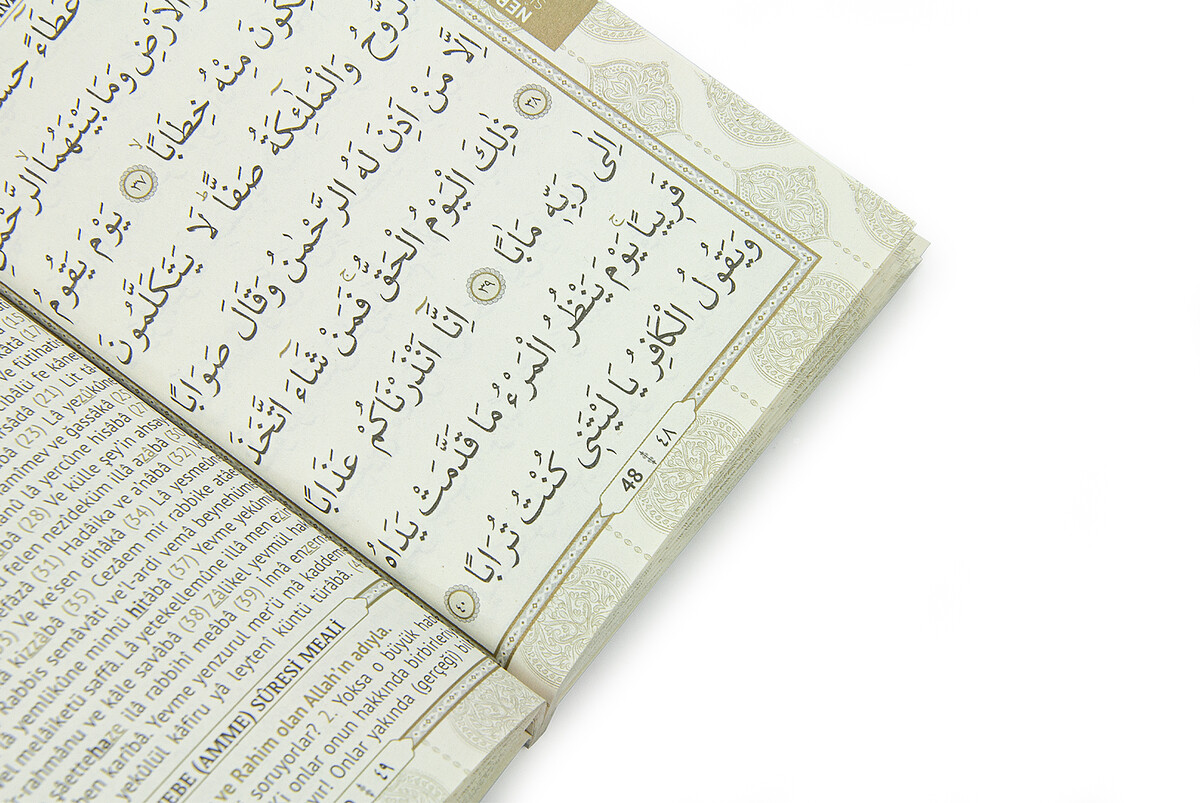 NEB
عَطَٓاءً
وَالْاَرْضِ وَمَا بَيْنَهُمَا الرَّحْمٰنِ
مِنْهُ خِطَابًاۙ ٣٧ يَوْمَ يَقُومُ
الرُّوحُ وَالْمَلٰٓئِكَةُ صَفًّاۜ لَا يَتَكَلَّمُونَ
اِلَّا مَنْ اَذِنَ لَهُ الرَّحْمٰنُ وَقَالَ صَوَابًا
٣٨ ذٰلِكَ الْيَوْمُ الْحَقُّۚ فَمَنْ شَٓاءَ اتَّخَذَ
اِلٰى رَبِّهِ مَاٰبًا ٣٩ اِنَّٓا اَنْذَرْنَاكُمْ عَذَابًا
قَرِيبًاۚ يَوْمَ يَنْظُرُ الْمَرْءُ مَا قَدَّمَتْ يَدَاهُ
وَيَقُولُ الْكَافِرُ يَا لَيْتَنِى كُنْتُ تُرَابًا ٤٠
48 ٤٨
(21) Lit
(23) Lâ yezûkûne
ve ğassâkâ
lâ yercûne hisâbâ (27)
(28) Ve külle şey'in ahsa
felen nezîdeküm illâ azâbâ (30)
(31) Hadâika ve a'nâbâ (32)
Ve ke'sen dihâkâ (34) Lâ yesmeûn
kizzâbâ (35) Cezâem mir rabbike atâe
Rabbis semâvâti ve'l-ardi vemâ beynehüma
lâ yemlikûne minhü hitâbâ (37) Yevme yekûmü
vel melâiketü saffâ. Lâ yetekellemûne illâ men ezi
rahmânu ve kâle savâbâ (38) Zâlikel yevmül ha
şâettehaze ilâ rabbihî meâbâ (39) İnnâ enze
karîbâ. Yevme yenzurul mer'ü mâ kaddeme
yekûlül kâfiru yâ leytenî küntü türâbâ.
EBE (AMME) SÛRESİ MEALİ
ve Rahim olan Allah'ın adıyla.
soruyorlar? 2. Yoksa o büyük hab
onlar onun hakkında birbirleriy
Onlar yakında (gerçeği) bil
٤٩